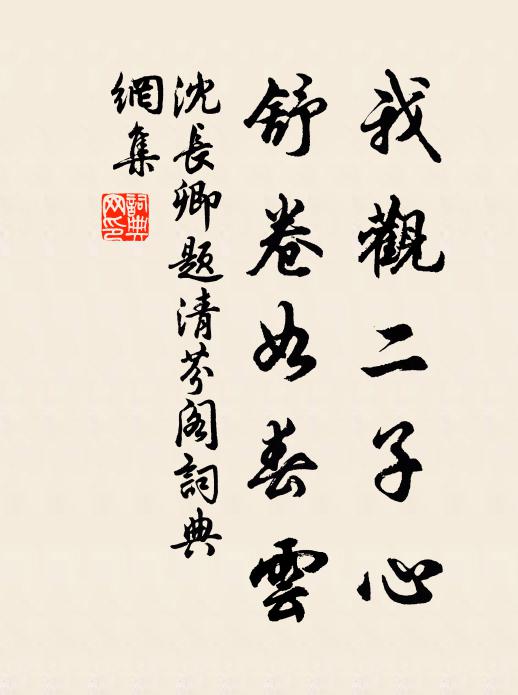 我觀二子心
舒卷如春雲
沈長卿題清芬閣詞典
網集
詞典
网印